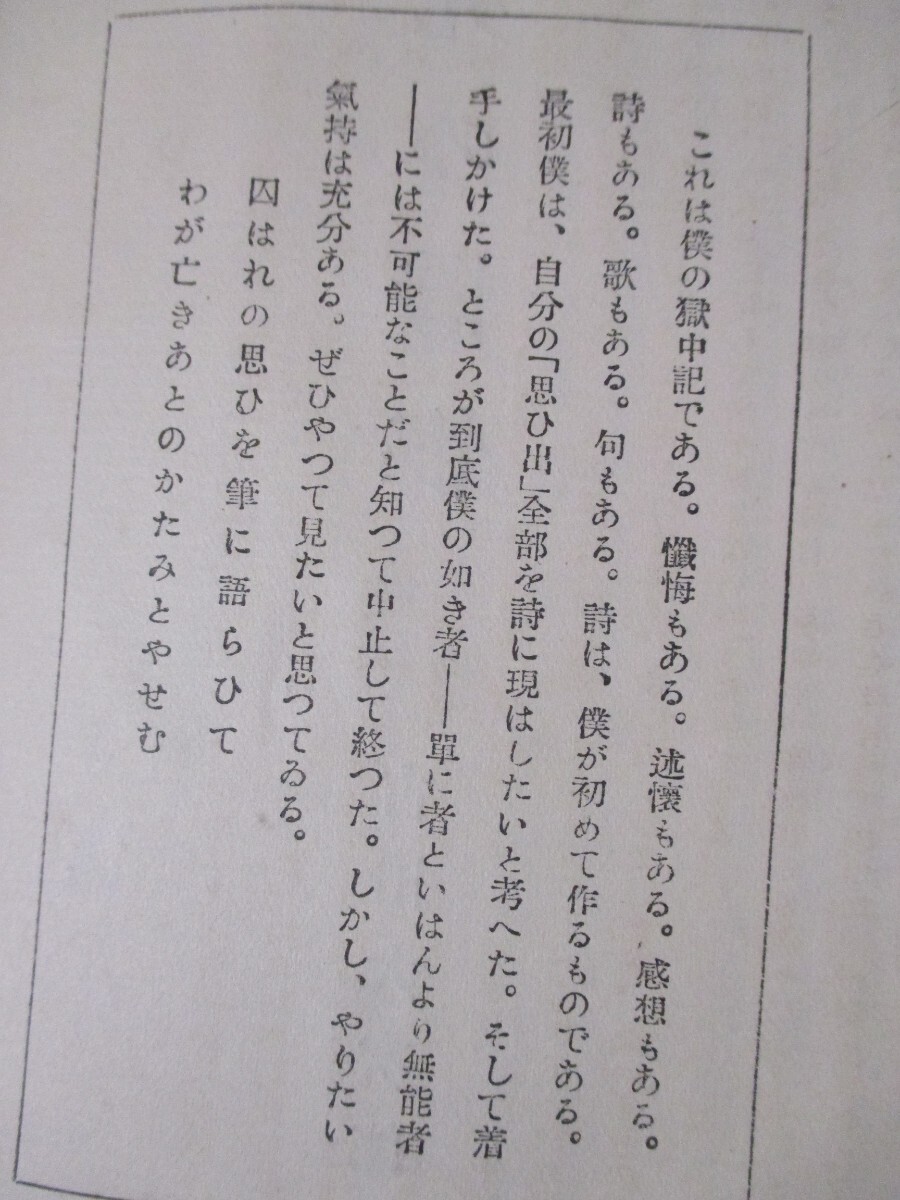 これは僕の獄中記である。懺悔もある。述懷もある。感想もある。
詩もある。歌もある。句もある。詩は、僕が初めて作るものである。
最初僕は、自分の「思ひ出」全部を詩に現はしたいと考へた。そして着
手しかけた。ところが到底僕の如き者――單に者といはんより無能者
――には不可能なことだと知つて中止して終つた。しかし、やりたい
氣持は充分ある。ぜひやつて見たいと思つてゐる。
囚はれの思ひを筆に語らひて
わが亡きあとのかたみとやせむ